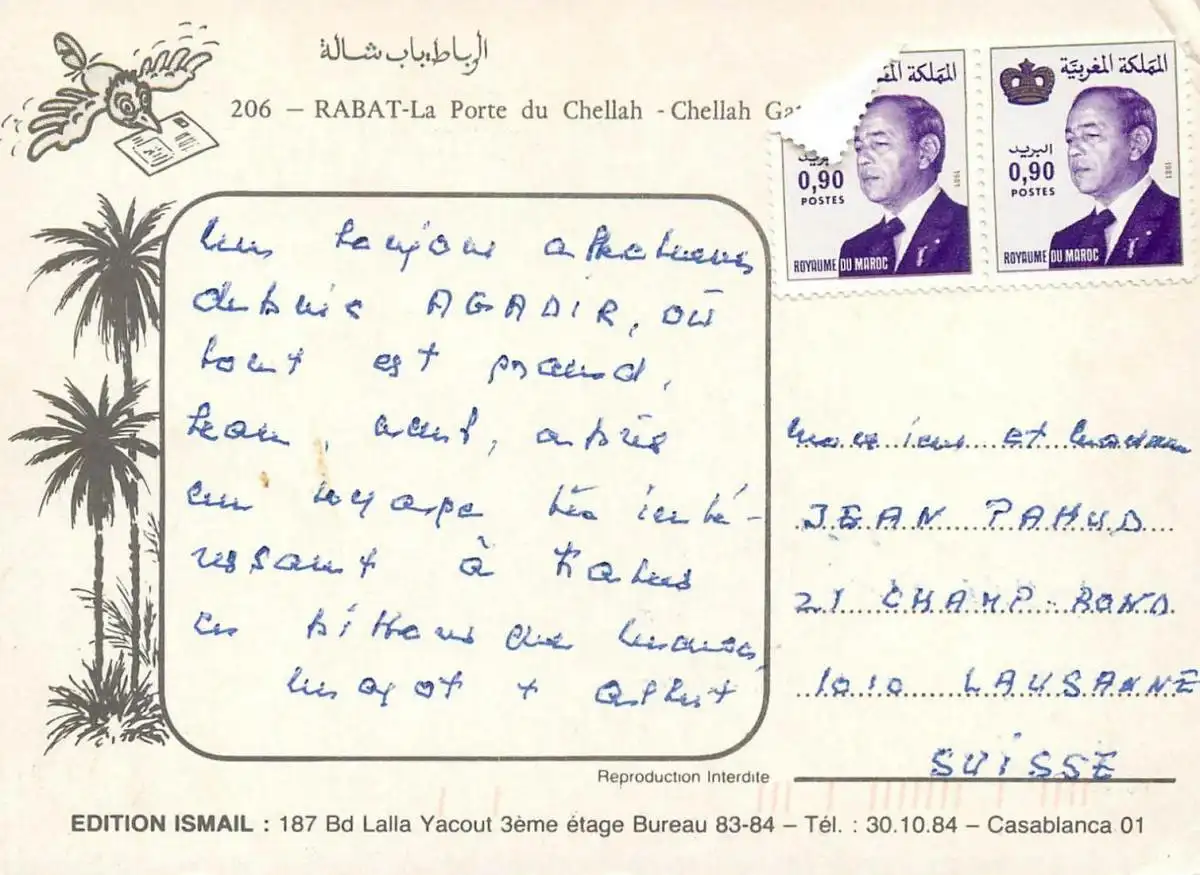 الرباط، باب شالة
206 – RABAT-La Porte du Chellah - Chellah Ga
المملكة المغربية
البريد
0,90
POSTES
1981
ROYAUME DU MAROC
المملكة المغربية
البريد
0,90
POSTES
1981
ROYAUME DU MAROC
affectueux
depuis AGADIR, où
tout est grand,
beau, avant, après
un voyage très inté-
ressant à travers
le pittoresque
+ Albert
Monsieur et Madame
JEAN PAHUD
21 CHAMP-ROND
1010 LAUSANNE
SUISSE
Reproduction Interdite
EDITION ISMAIL : 187 Bd Lalla Yacout 3ème étage Bureau 83-84 – Tél. : 30.10.84 – Casablanca 01